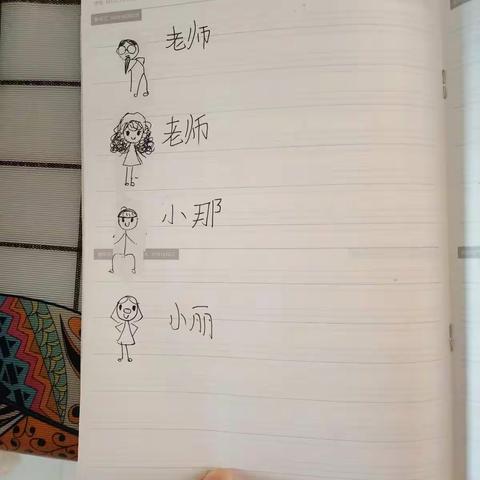 老师
老师
小那
小丽